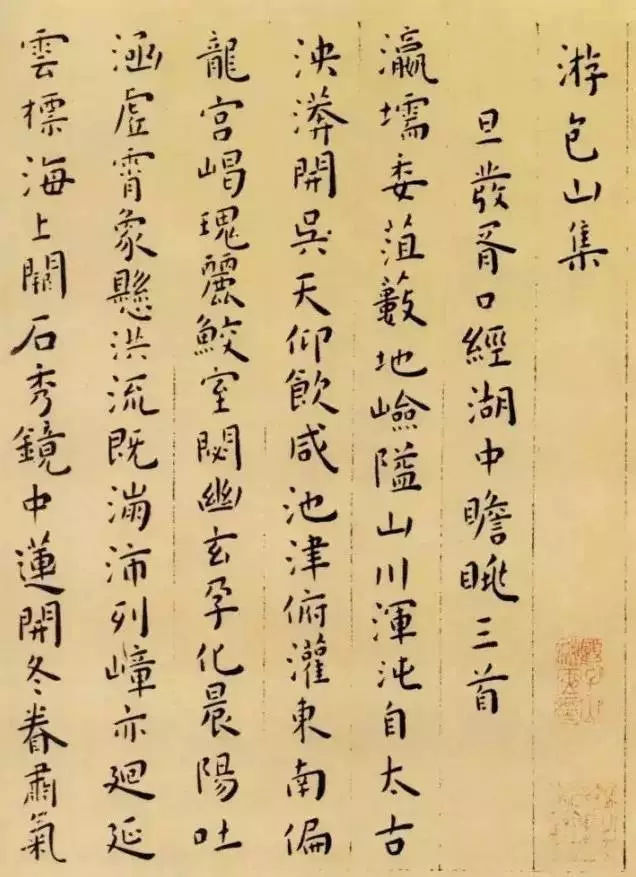 游包山集
旦發胥口經湖中瞻眺三首
瀛壖委菹藪地嶮隘山川渾沌自太古
泱漭開吳天仰飲咸池津俯灌東南偏
龍宮嵑瑰麗鮫室閟幽玄孕化晨陽吐
涵虛霄象懸洪流既滂沛列嶂亦廻延
雲標海上闕石秀鏡中蓮開冬眷肅氣